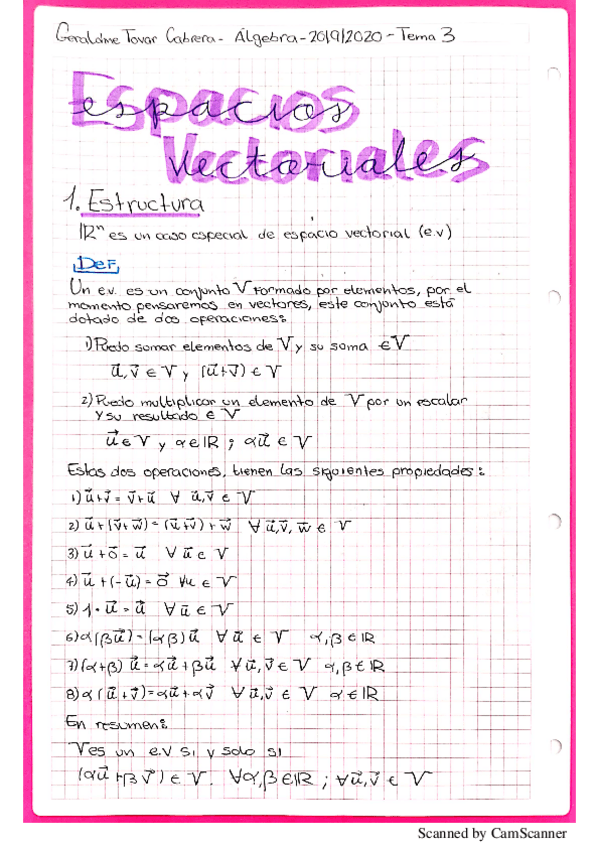 Geraldine Tovar Cabrera - Álgebra - 2019/2020 - Tema 3
Espacios
Vectoriales
1. Estructura
ℝⁿ es un caso especial de espacio vectorial (e.v)
Def
Un e.v. es un conjunto V formado por elementos, por el
momento pensaremos en vectores, este conjunto está
dotado de dos operaciones:
1) Puedo sumar elementos de V y su suma ∈ V
u⃗, v⃗ ∈ V y (u⃗+v⃗) ∈ V
2) Puedo multiplicar un elemento de V por un escalar
y su resultado ∈ V
u⃗ ∈ V y α ∈ ℝ ; αu⃗ ∈ V
Estas dos operaciones, tienen las siguientes propiedades:
1) u⃗+v⃗ = v⃗+u⃗ ∀ u⃗,v⃗ ∈ V
2) u⃗+(v⃗+w⃗) = (u⃗+v⃗)+w⃗ ∀ u⃗,v⃗, w⃗ ∈ V
3) u⃗+o⃗ = u⃗ ∀ u⃗ ∈ V
4) u⃗+(-u⃗) = o⃗ ∀u ∈ V
5) 1·u⃗ = u⃗ ∀ u⃗ ∈ V
6) α(βu⃗) = (αβ)u⃗ ∀ u⃗ ∈ V α,β ∈ ℝ
7) (α+β)u⃗ = αu⃗+βu⃗ ∀ u⃗,v⃗ ∈ V α,β ∈ ℝ
8) α(u⃗+v⃗) = αu⃗+αv⃗ ∀ u⃗,v⃗ ∈ V α ∈ ℝ
En resumen:
V es un e.v si y solo si
(αu⃗+βv⃗) ∈ V. ∀α,β ∈ ℝ ; ∀u⃗,v⃗ ∈ V
Scanned by CamScanner